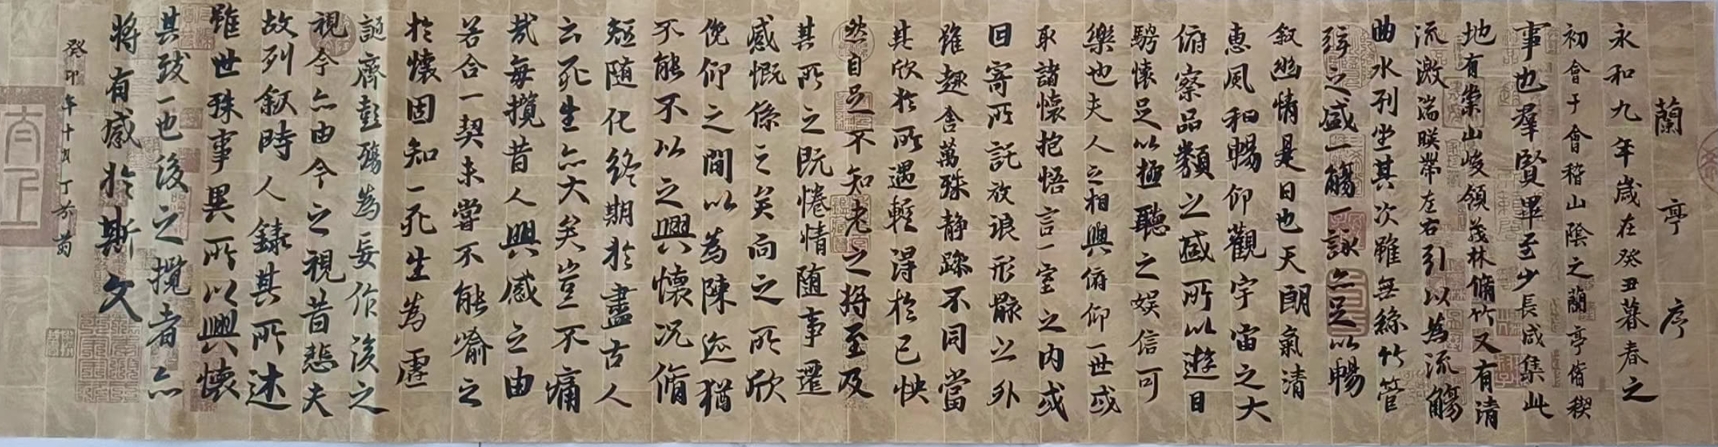 蘭亭序
永和九年歲在癸丑暮春之
初會于會稽山陰之蘭亭脩稧
事也羣賢畢至少長咸集此
地有崇山峻領茂林脩竹又有清
流激湍暎帶左右引以為流觴
曲水列坐其次雖無絲竹管
弦之盛一觴一詠亦足以暢
叙幽情是日也天朗氣清
惠風和暢仰觀宇宙之大
俯察品類之盛所以遊目
騁懷足以極聽之娱信可
樂也夫人之相與俯仰一世或
取諸懷抱悟言一室之内或
因寄所託放浪形骸之外
雖趣舍萬殊静躁不同當
其欣於所遇蹔得於己怏
然自足不知老之將至及
其所之既惓情随事遷
感慨係之矣向之所欣
俛仰之間以為陳迹猶
不能不以之興懷况脩
短随化終期於盡古人
云死生亦大矣豈不痛
哉每攬昔人興感之由
若合一契未嘗不能喻之
於懷固知一死生為虛
誕齊彭殤為妄作後之
視今亦由今之視昔悲夫
故列叙時人錄其所述
雖世殊事異所以興懷
其致一也後之攬者亦
將有感於斯文
癸卯年十月丁